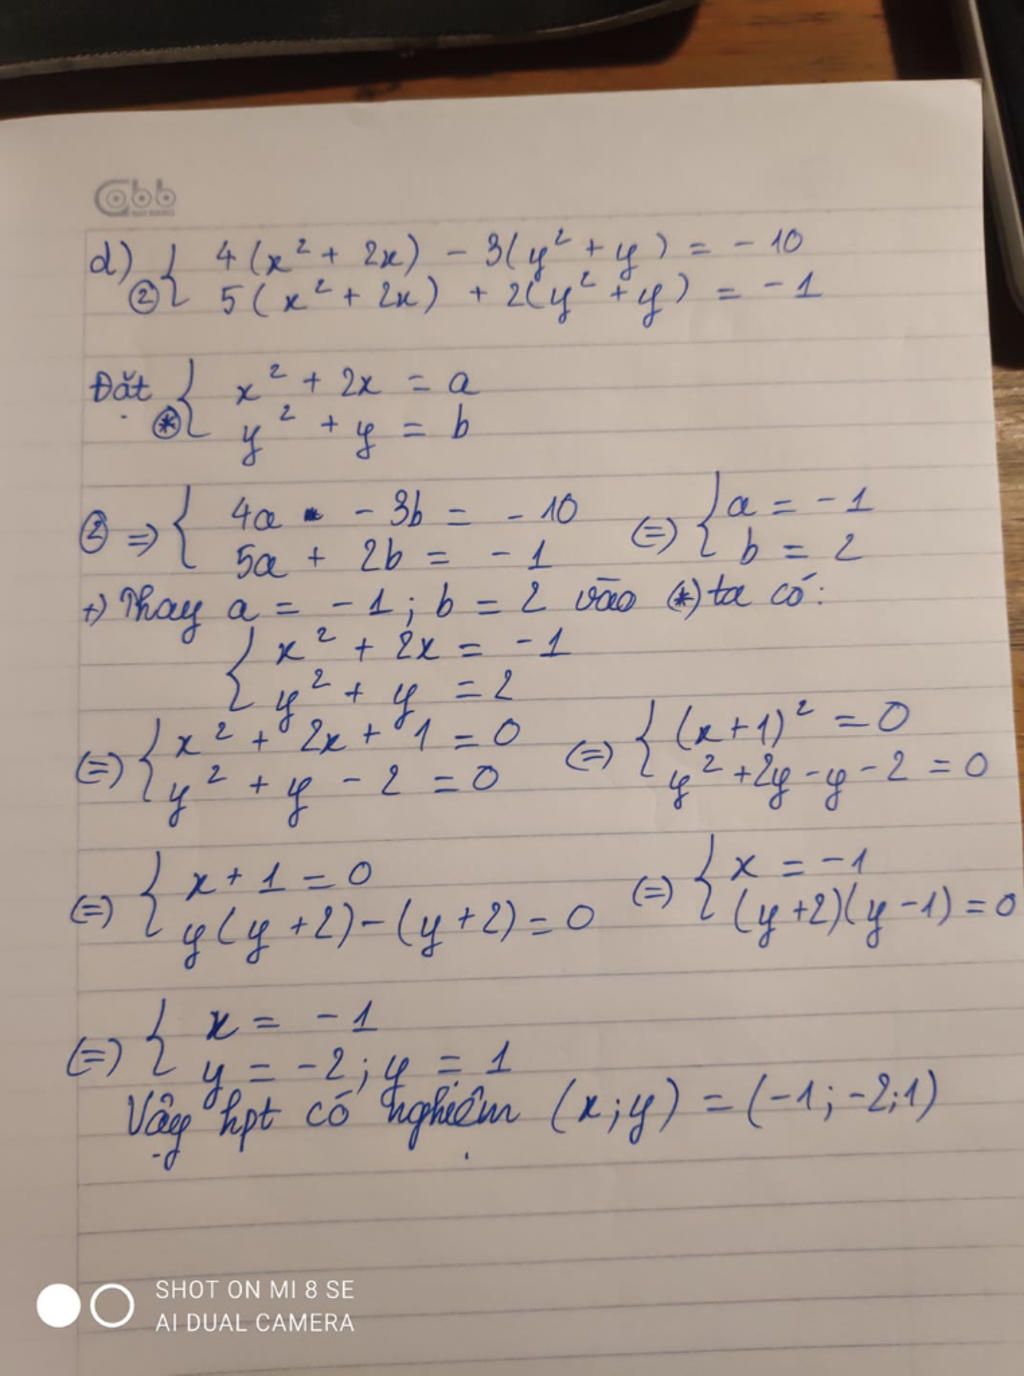 abb
d) { 4(x² + 2x) - 3(y² + y) = -10
② { 5(x² + 2x) + 2(y² + y) = -1
Đặt { x² + 2x = a
(*) { y² + y = b
② => { 4a - 3b = -10 (=) { a = -1
{ 5a + 2b = -1 { b = 2
+) Thay a = -1; b = 2 vào (*) ta có:
{ x² + 2x = -1
{ y² + y = 2
(=) { x² + 2x + 1 = 0 (=) { (x+1)² = 0
{ y² + y - 2 = 0 { y² + 2y - y - 2 = 0
(=) { x + 1 = 0 (=) { x = -1
{ y(y+2) - (y+2) = 0 { (y+2)(y-1) = 0
(=) { x = -1
{ y = -2; y = 1
Vậy hpt có nghiệm (x;y) = (-1;-2;1)
SHOT ON MI 8 SE
AI DUAL CAMERA